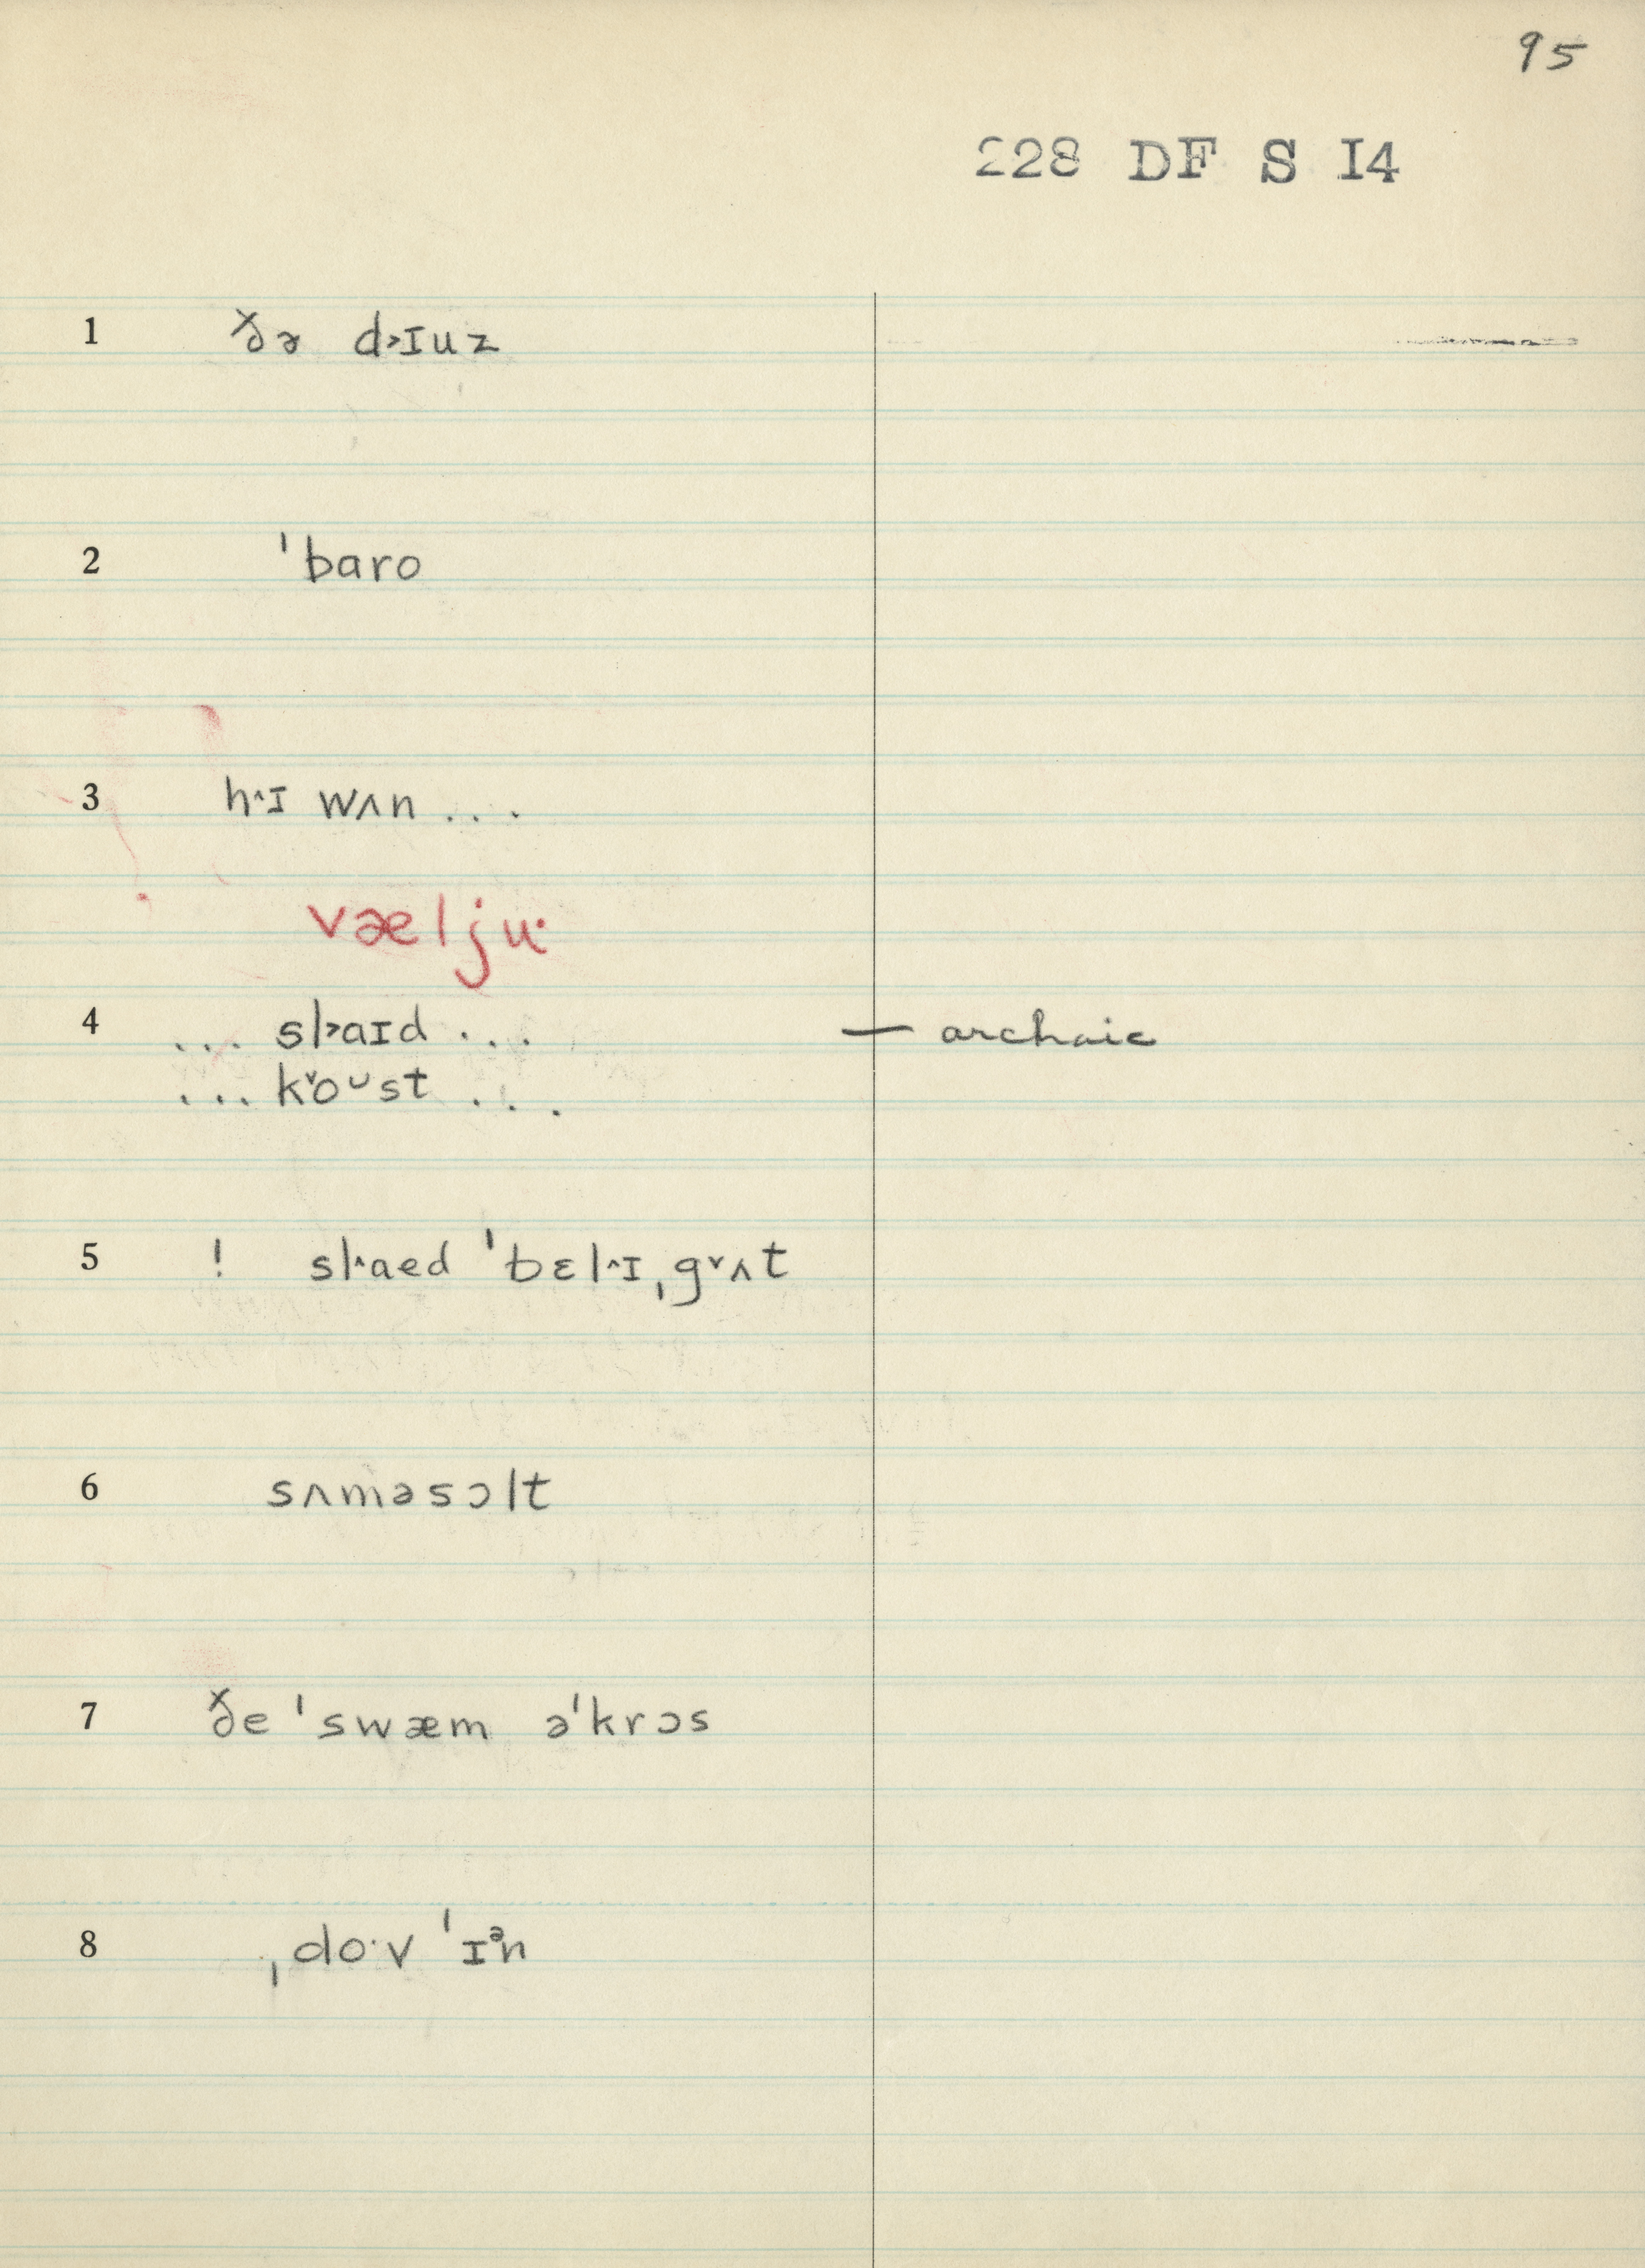 95
228 DF S I4
1 ðə d˃ɪuz
2 ˈbaro
3 h˄ɪ wʌn ...
væljuˑ
4 ... sl˃aɪd ... — archaic
... k˅oᴗst ...
5 ! sl˄aed ˈbɛl˄ɪˌg˅ʌt
6 sʌməsɔlt
7 ðe ˈswæm əˈkrɔs
8 ˌdoˑv ˈɪᵊn